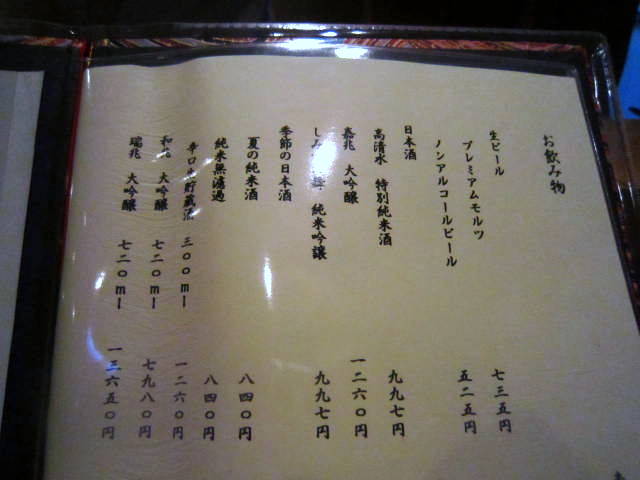 お飲み物
生ビール
プレミアムモルツ 七三五円
ノンアルコールビール 五二五円
日本酒
高清水 特別純米酒 九九七円
嘉兆 大吟醸 一二六〇円
しみ 純米吟醸 九九七円
季節の日本酒
夏の純米酒 八四〇円
純米無濾過 八四〇円
辛口生貯蔵酒 三〇〇ml 一二六〇円
和兆 大吟醸 七二〇ml 七九八〇円
瑞兆 大吟醸 七二〇ml 一三六五〇円